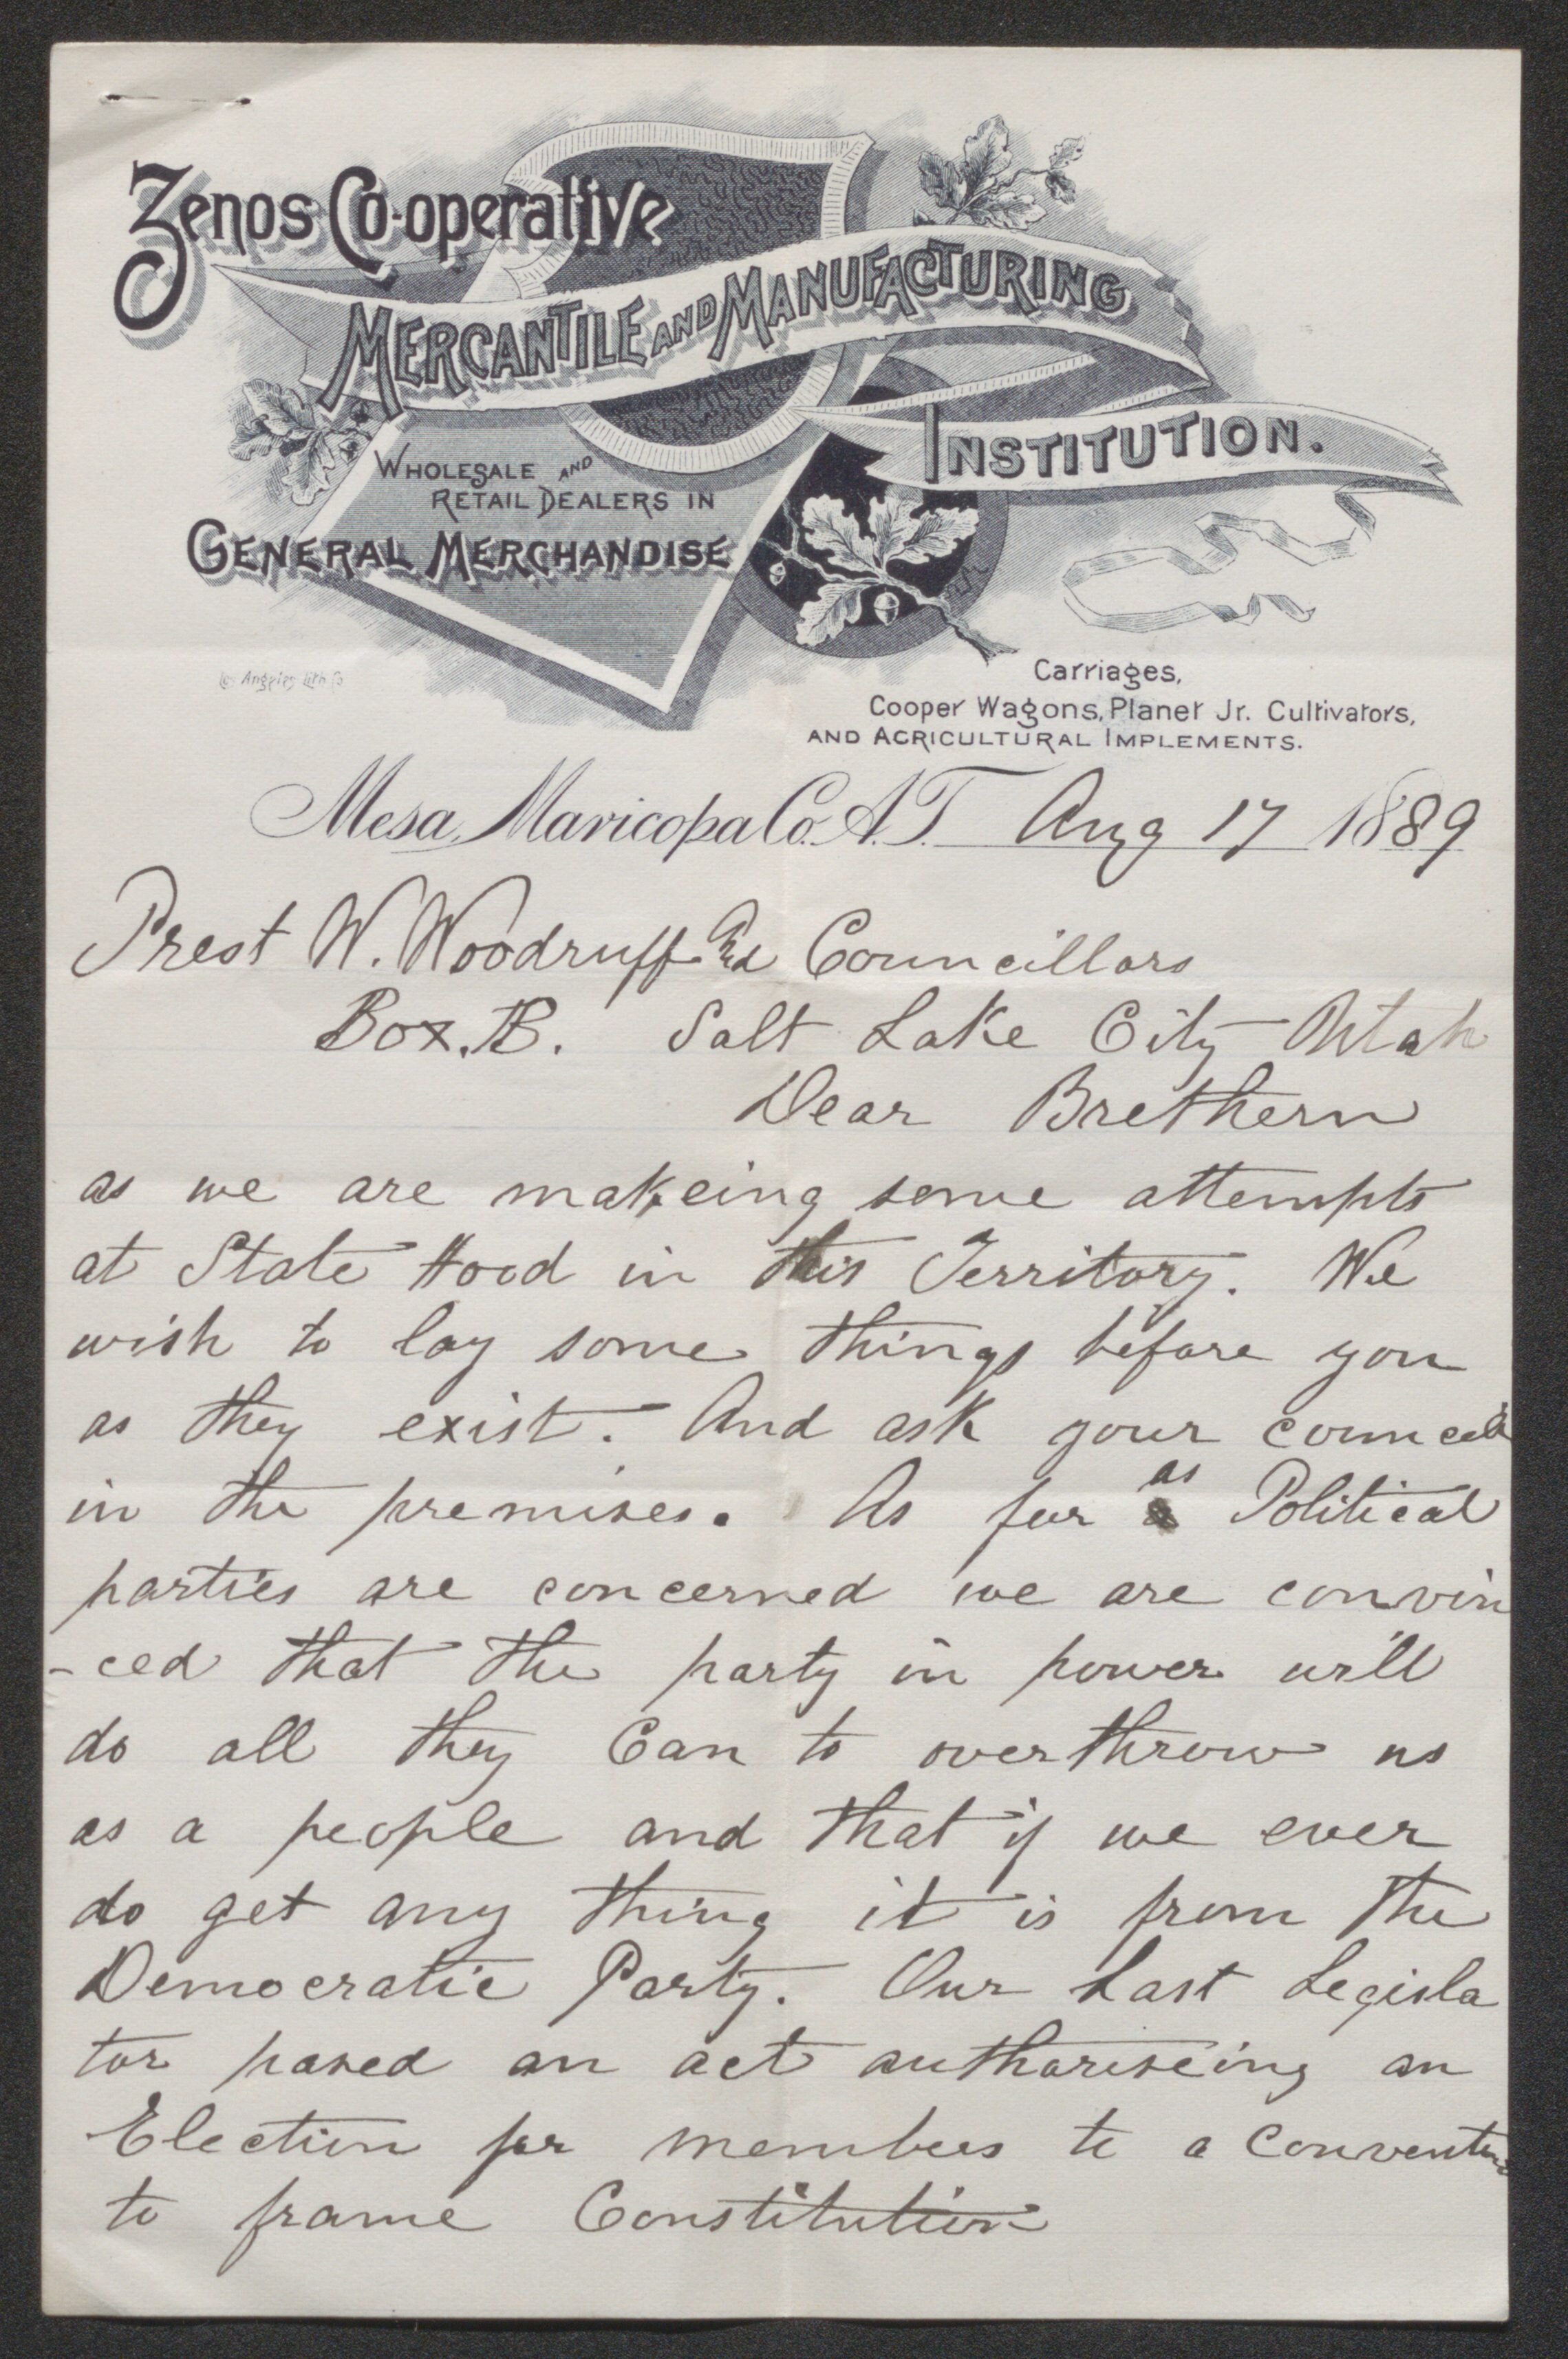 Zenos Co-operative
Mercantile and Manufacturing
Institution.
Wholesale and
Retail Dealers in
General Merchandise
Lith Co
Carriages,
Cooper Wagons, Planet Jr. Cultivators,
and Agricultural Implements.
Mesa, Maricopa Co. A.T. Aug 17 1889
Prest W. Woodruff And Councillors
Box. B. Salt Lake City Utah
Dear Brethern
as we are makeing some attempts
at State Hood in this Territory. We
wish to lay some things before you
as they exist. And ask your
in the premises. As fur as Political
parties are concerned we are convin
-ced that the party in power will
do all they Can to overthrow us
as a people and that if we ever
do get any thing it is from the
Democratic Party. Our Last Legisla
tor pased an act authoriseing an
Election for members to a Convention
to frame Constitution